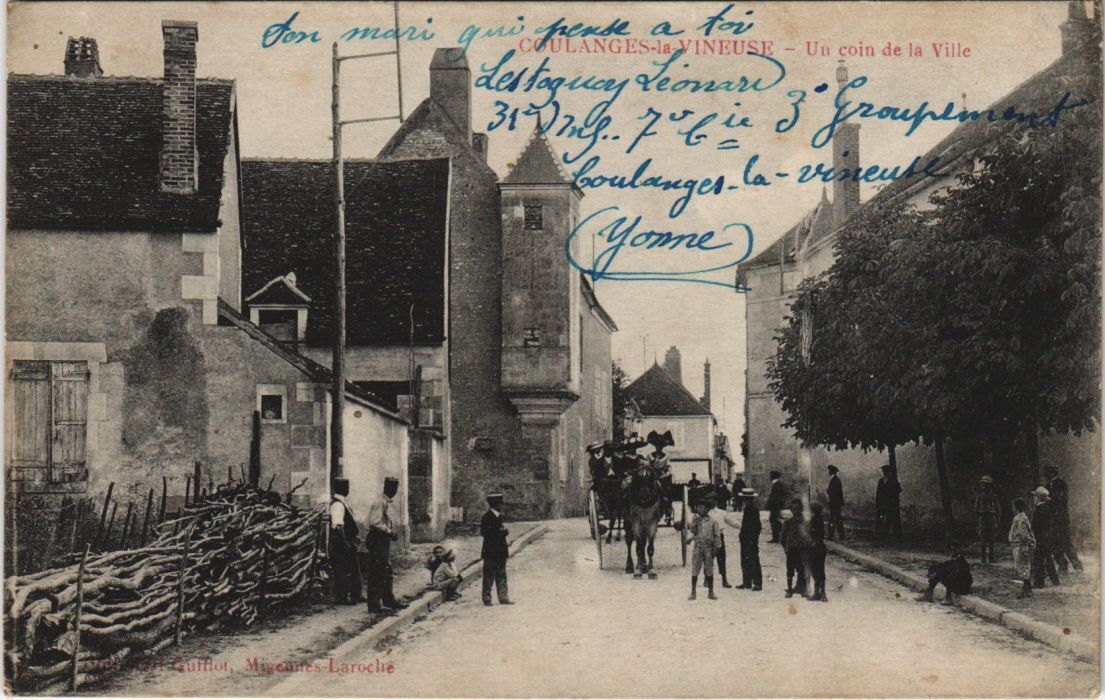 Ton mari qui pense a toi
COULANGES-la-VINEUSE - Un coin de la Ville
Léonard
31e Inf. 7e Cie 3e Groupement
Coulanges-la-vineuse
(Yonne)
Guillot, Migennes-Laroche